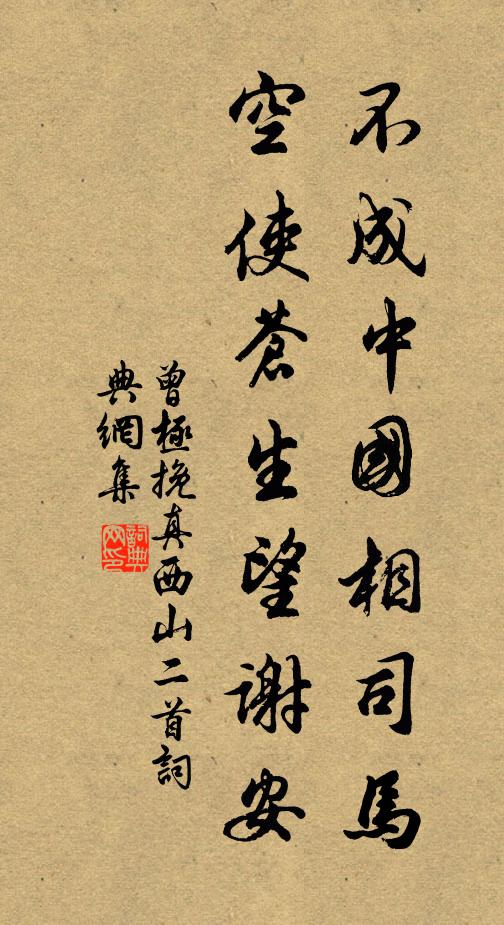 不成中國相司馬
空使蒼生望謝安
曾極挽真西山二首詞
典網集
詞典
网印